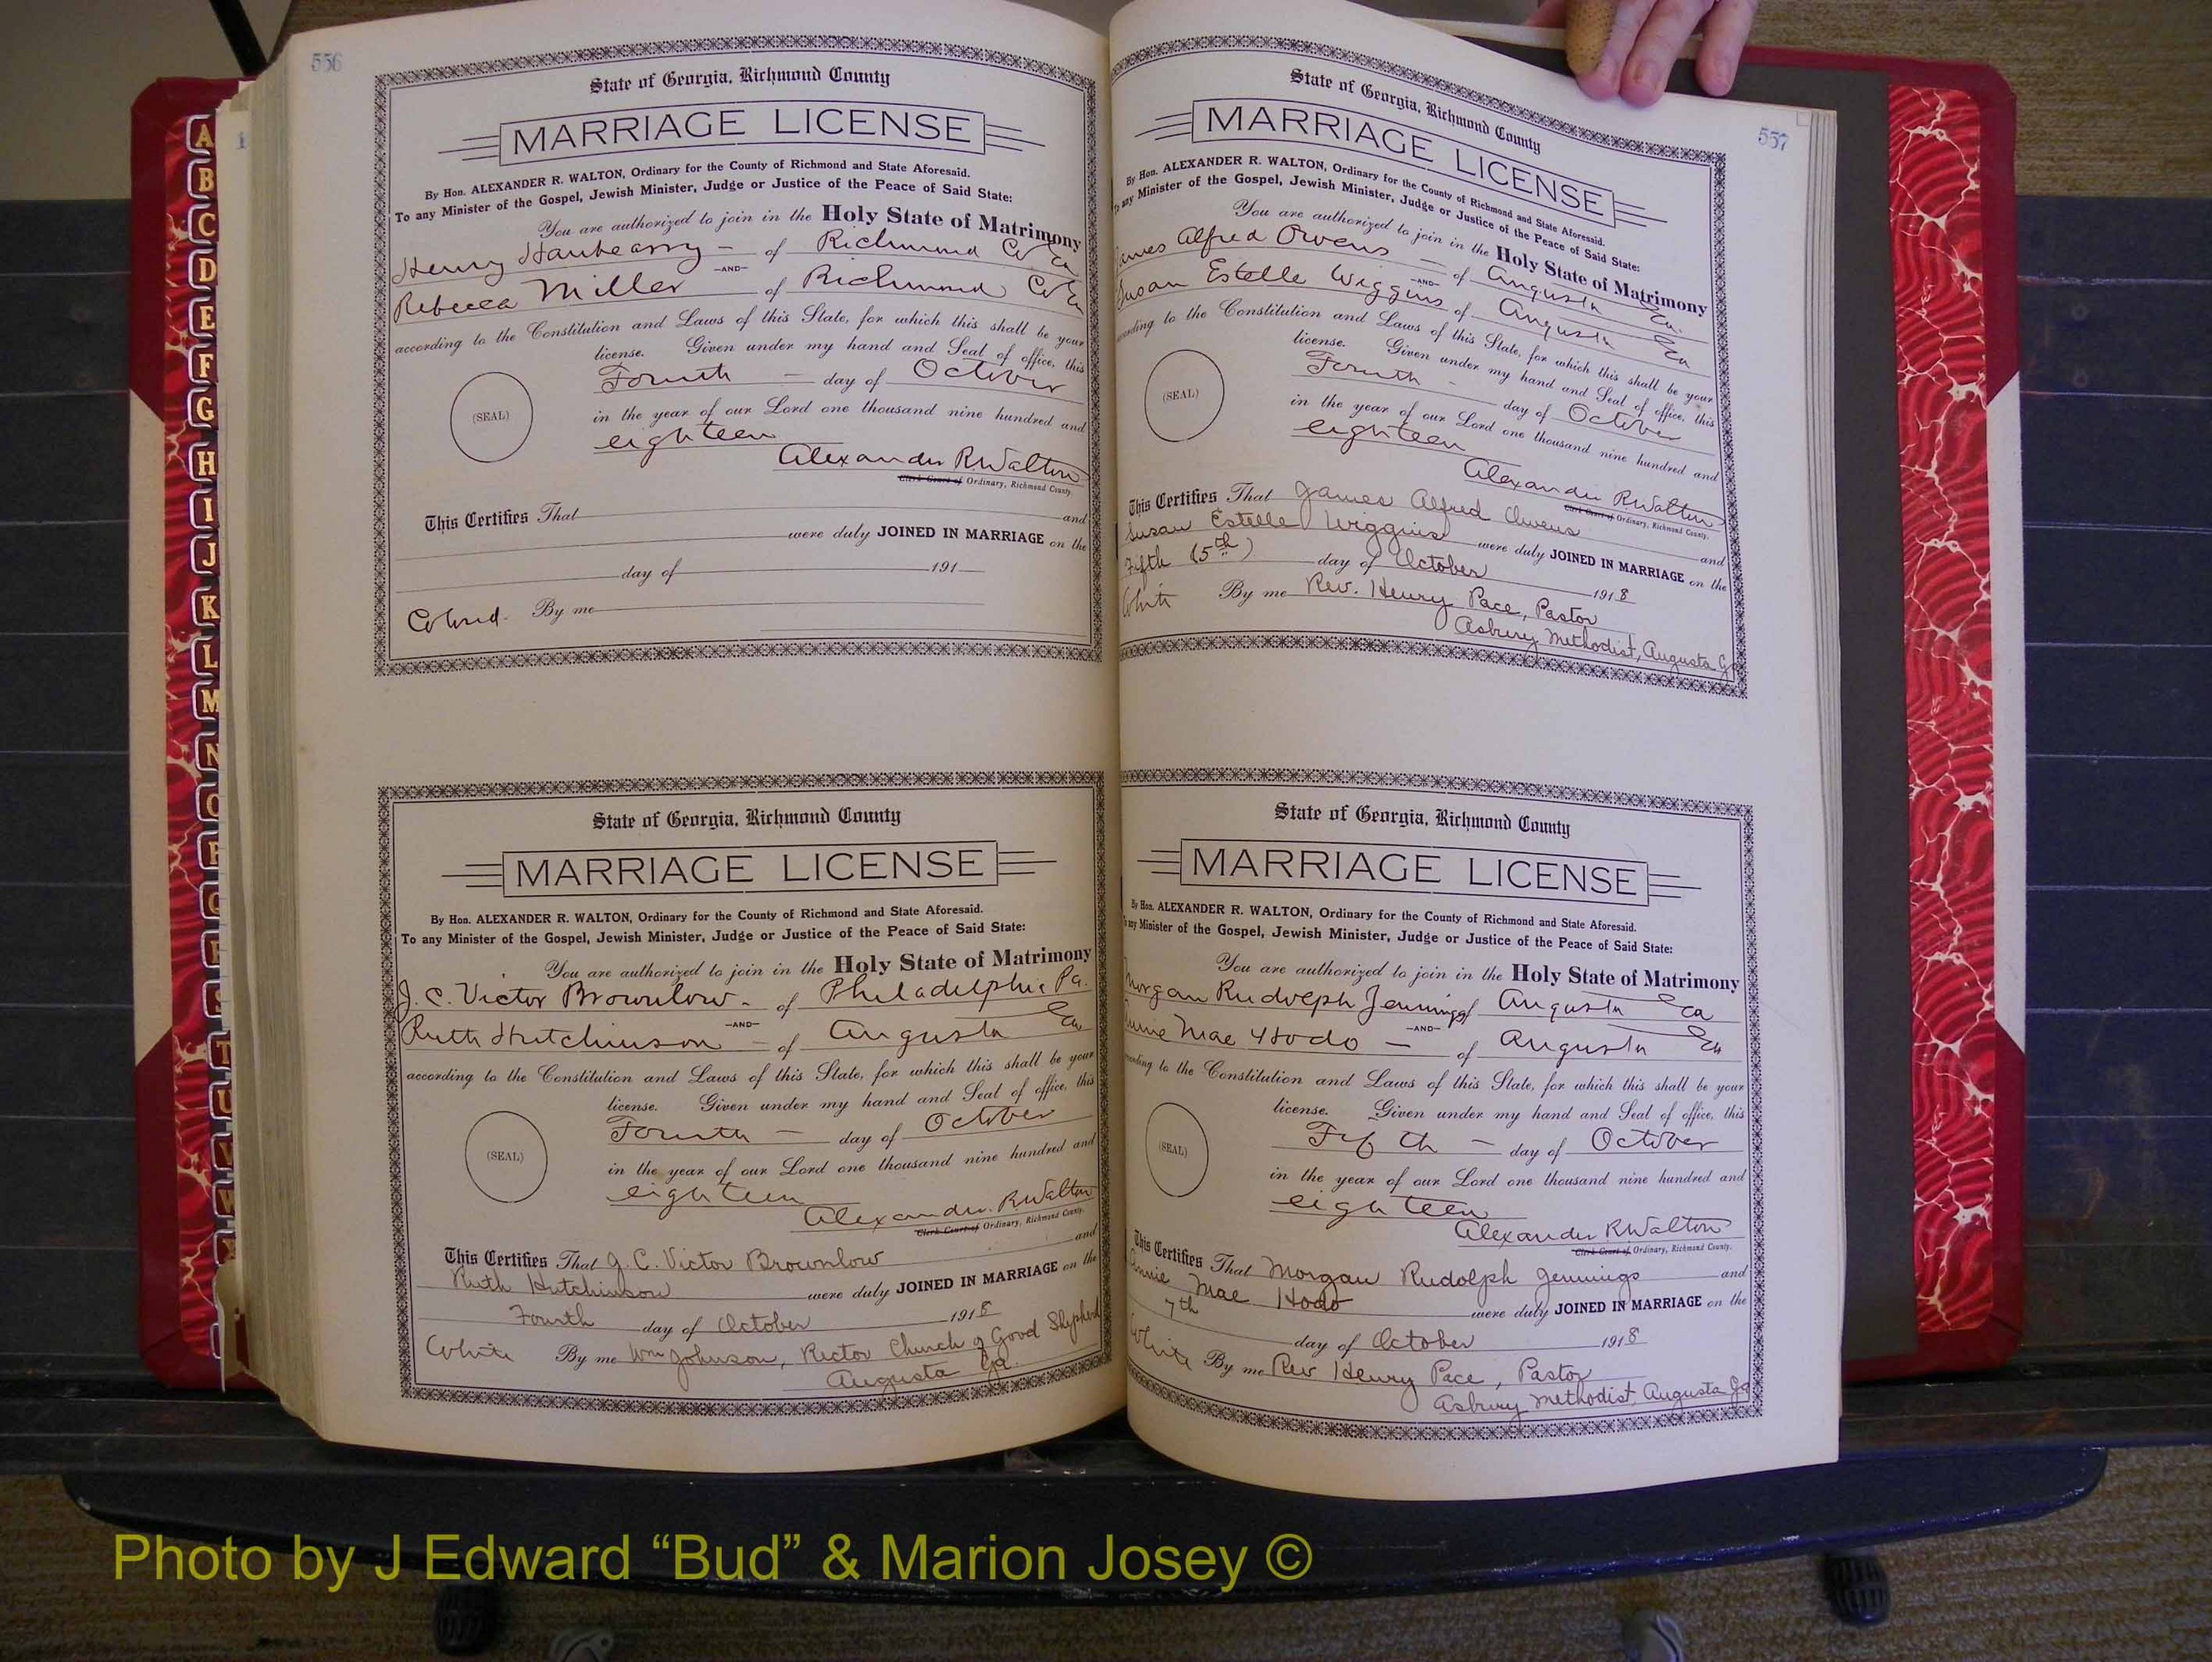 556
State of Georgia, Richmond County
MARRIAGE LICENSE
By Hon. ALEXANDER R. WALTON, Ordinary for the County of Richmond and State Aforesaid.
To any Minister of the Gospel, Jewish Minister, Judge or Justice of the Peace of Said State:
You are authorized to join in the Holy State of Matrimony
Henry — of Richmond Co Ga
—AND—
Rebecca Miller of Richmond Co Ga
according to the Constitution and Laws of this State, for which this shall be your
license. Given under my hand and Seal of office, this
Fourth — day of October
(SEAL)
in the year of our Lord one thousand nine hundred and
eighteen
Alexander R. Walton
Clerk Court of Ordinary, Richmond County.
This Certifies That and
were duly JOINED IN MARRIAGE on the
day of 191
Colored. By me
State of Georgia, Richmond County
MARRIAGE LICENSE
By Hon. ALEXANDER R. WALTON, Ordinary for the County of Richmond and State Aforesaid.
To any Minister of the Gospel, Jewish Minister, Judge or Justice of the Peace of Said State:
You are authorized to join in the Holy State of Matrimony
J. C. Victor Brownlow - of Philadelphia Pa.
—AND—
Ruth Hutchinson — of Augusta Ga
according to the Constitution and Laws of this State, for which this shall be your
license. Given under my hand and Seal of office, this
Fourth — day of October
(SEAL)
in the year of our Lord one thousand nine hundred and
eighteen
Alexander R Walton
Clerk Court of Ordinary, Richmond County.
This Certifies That J. C. Victor Brownlow and
Ruth Hutchinson were duly JOINED IN MARRIAGE on the
Fourth day of October 1918
White By me Wm Johnson, Rector Church of Good Shepherd
Augusta Ga.
557
State of Georgia, Richmond County
MARRIAGE LICENSE
By Hon. ALEXANDER R. WALTON, Ordinary for the County of Richmond and State Aforesaid.
To any Minister of the Gospel, Jewish Minister, Judge or Justice of the Peace of Said State:
You are authorized to join in the Holy State of Matrimony
James Alfred Owens — of Augusta Ga.
—AND—
Susan Estelle Wiggins of Augusta Ga
according to the Constitution and Laws of this State, for which this shall be your
license. Given under my hand and Seal of office, this
Fourth - day of October
(SEAL)
in the year of our Lord one thousand nine hundred and
eighteen
Alexander R Walton
Clerk Court of Ordinary, Richmond County.
This Certifies That James Alfred Owens and
Susan Estelle Wiggins were duly JOINED IN MARRIAGE on the
Fifth (5th) day of October 1918
White By me Rev. Henry Pace, Pastor
Asbury Methodist, Augusta Ga
State of Georgia, Richmond County
MARRIAGE LICENSE
By Hon. ALEXANDER R. WALTON, Ordinary for the County of Richmond and State Aforesaid.
To any Minister of the Gospel, Jewish Minister, Judge or Justice of the Peace of Said State:
You are authorized to join in the Holy State of Matrimony
Morgan Rudolph Jennings of Augusta Ga
—AND—
Annie Mae Hodo — of Augusta Ga
according to the Constitution and Laws of this State, for which this shall be your
license. Given under my hand and Seal of office, this
Fifth — day of October
(SEAL)
in the year of our Lord one thousand nine hundred and
eighteen
Alexander R Walton
Clerk Court of Ordinary, Richmond County.
This Certifies That Morgan Rudolph Jennings and
Annie Mae Hodo were duly JOINED IN MARRIAGE on the
7th day of October 1918
White By me Rev Henry Pace, Pastor
Asbury Methodist, Augusta Ga
A
B
C
D
E
F
G
H
I
J
K
L
M
N
O
P
Q
R
S
T
U
V
W
Photo by J Edward “Bud” & Marion Josey ©